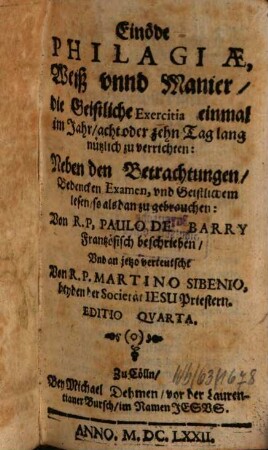 Einöde
PHILAGIÆ,
Weiß vnnd Manier/
die Geistliche Exercitia einmal
im Jahr/acht oder zehn Tag lang
nützlich zu verrichten:
Neben den Betrachtungen/
Bedencken Examen, vnd Geistlichem
lesen/so alsdan zu gebrauchen:
Von R. P. PAULO DE BARRY
Frantzösisch beschrieben/
Vnd an jetzo verteutscht
Von R. P. MARTINO SIBENIO,
beyden der Societät IESU Priestern.
EDITIO QVARTA.
Zu Cölln/
Bey Michael Dehmen/vor der Lauren-
tianer Bursch/im Namen JESVS.
ANNO. M. DC. LXXII.